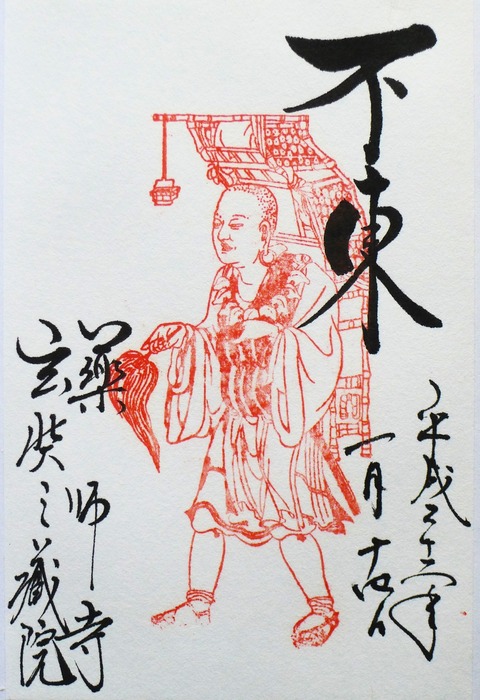 不東
平成二十六年
一月
藥師寺
玄奘三蔵院